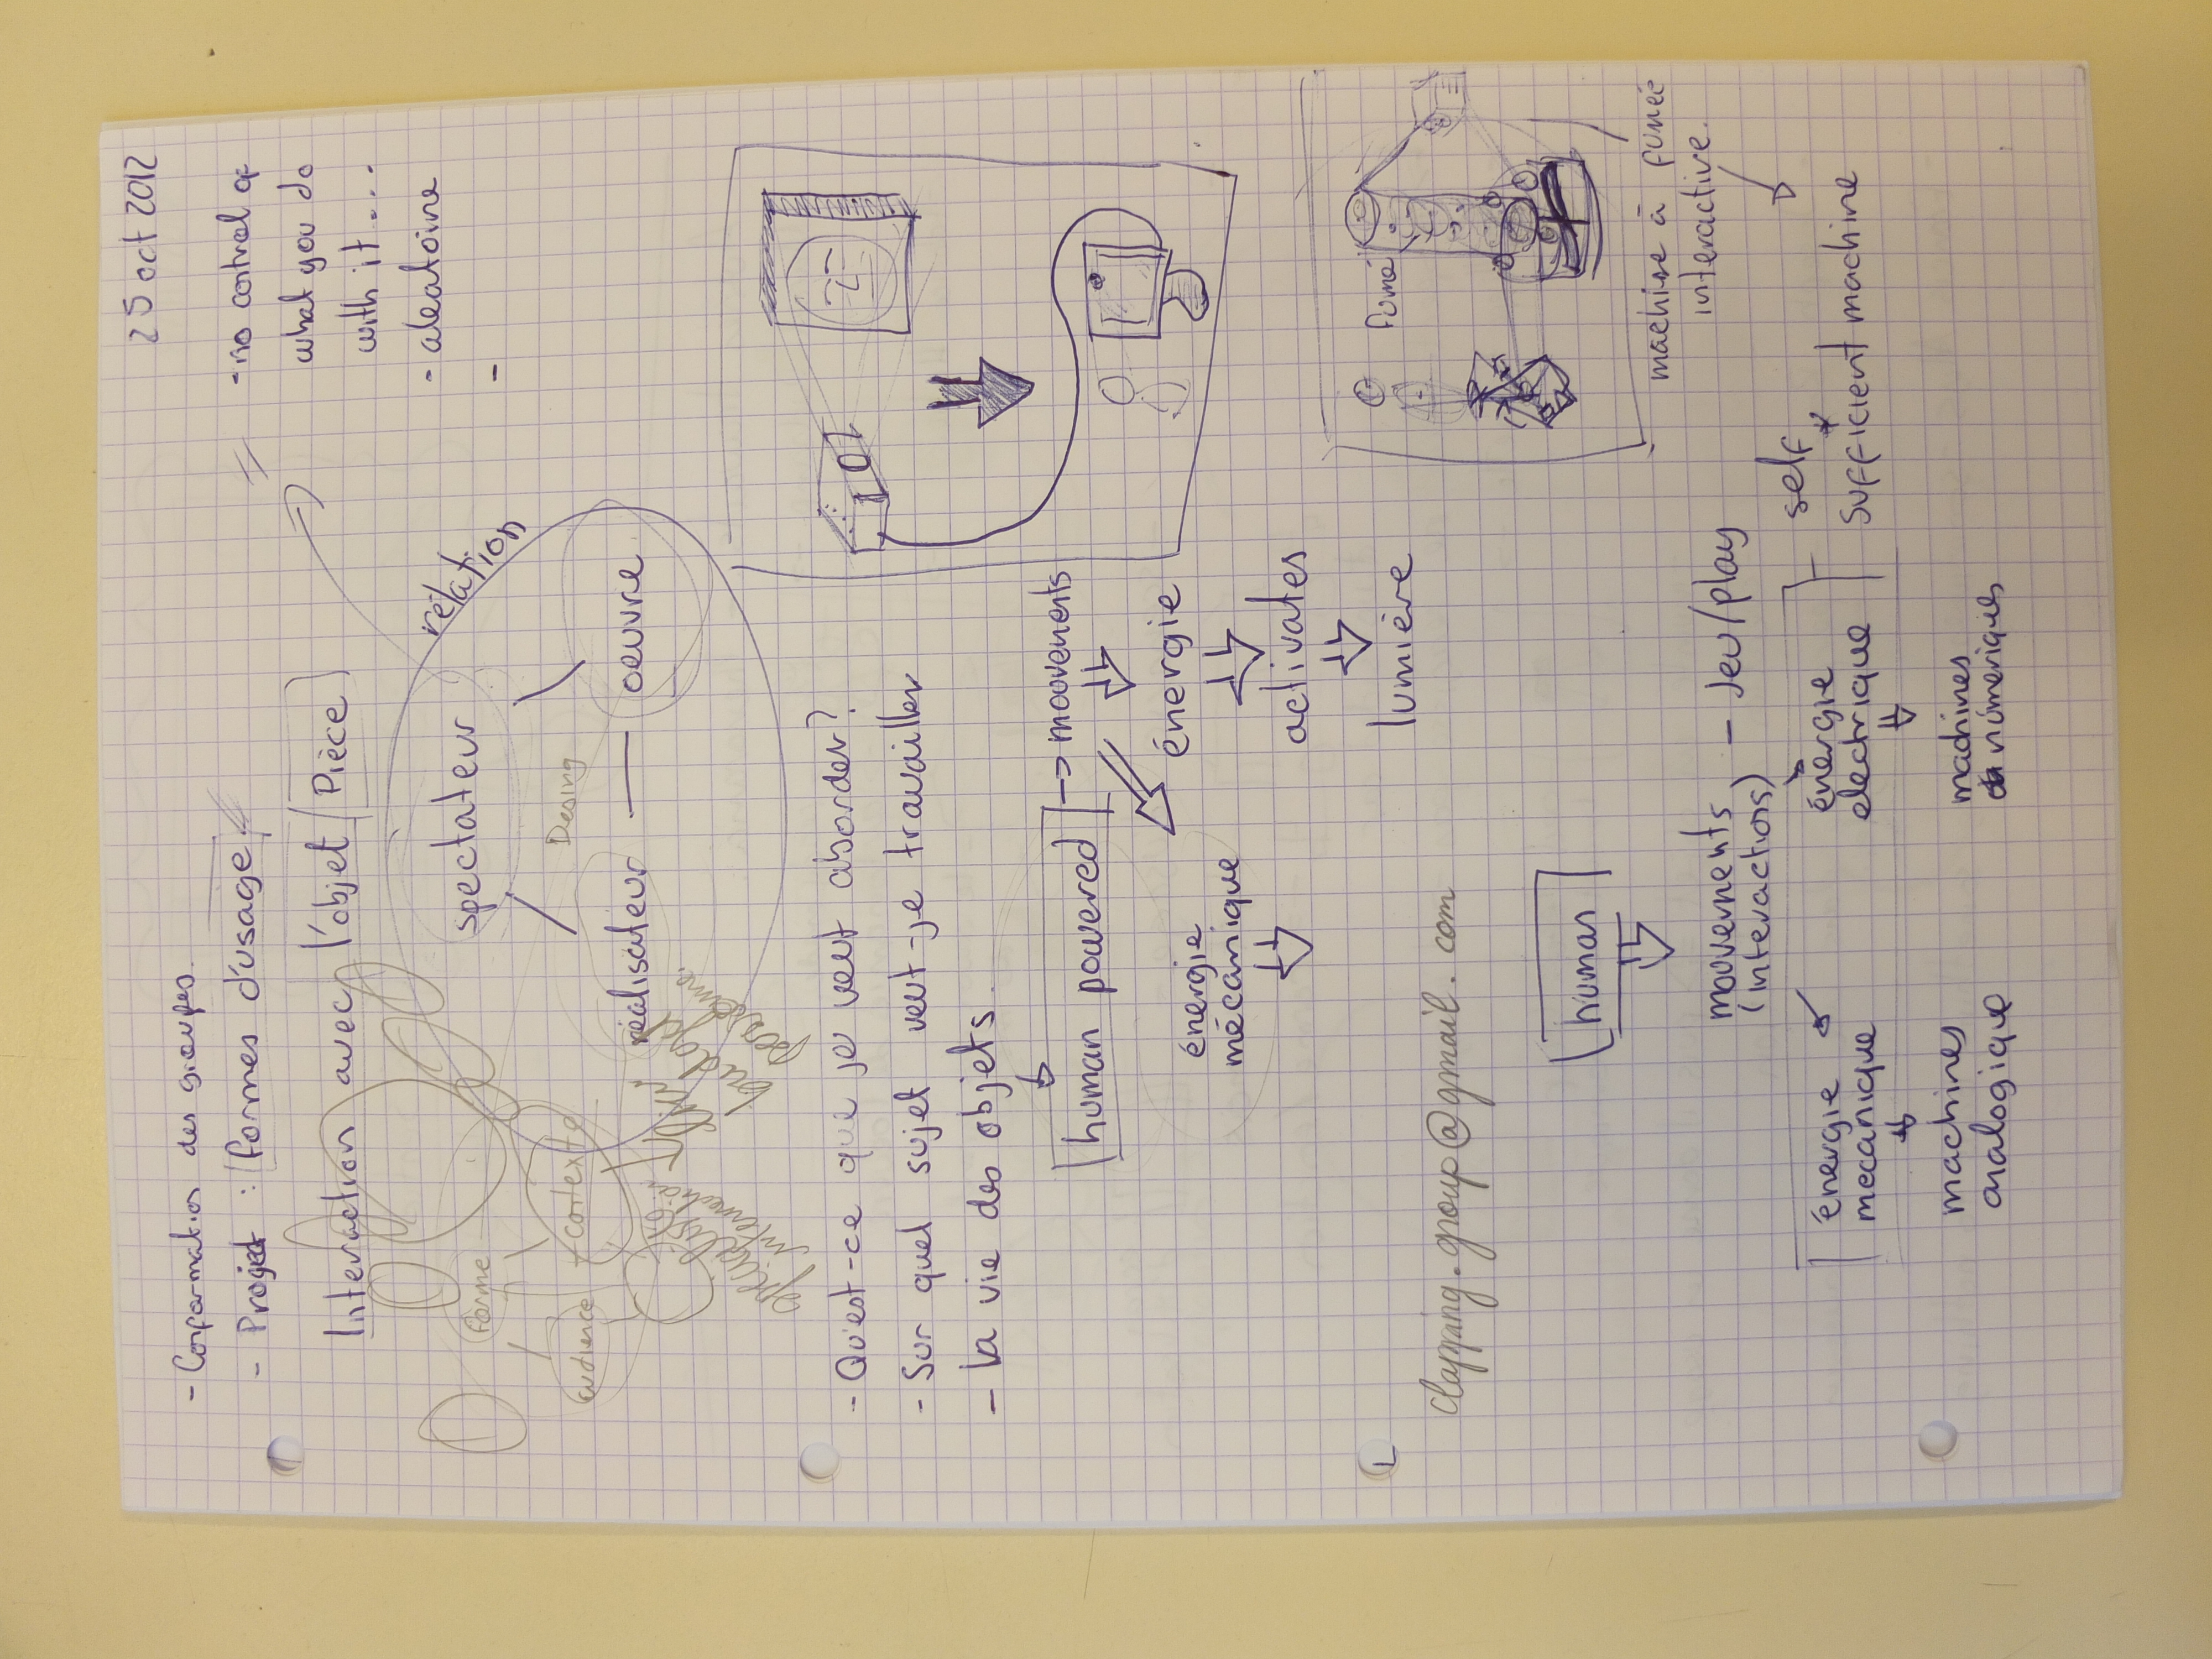 25 oct 2012
- Conformation des groupes.
- Projet : formes d'usage
Interaction avec l'objet / Pièce
- no control of
what you do
with it....
- aleatoire
-
relation
spectateur
Desing
réalisateur — oeuvre
forme
audience
contexte
- Qu'est-ce que je veut aborder?
- Sur quel sujet veut-je travailler
- la vie des objets.
human powered → moovements
énergie
énergie
mécanique
activates
lumière
clapping.group@gmail.com
fumé
machine à fumée
interactive.
human
moovements
(interactions)
- Jeu/play
self
sufficient machine
énergie
mecanique
énergie
electrique
machines
analogique
machines
númeriques